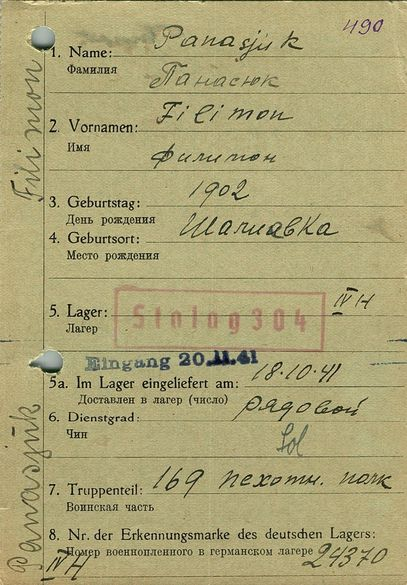 490
Panasjuk Filimon
1. Name: Panasjuk
Фамилия Панасюк
2. Vornamen: Filimon
Имя Филимон
3. Geburtstag: 1902
День рождения
4. Geburtsort: Шалиавка
Место рождения
5. Lager: Stalag 304 IV H
Лагерь
Eingang 20.11.41
5a. Im Lager eingeliefert am: 18.10.41
Доставлен в лагерь (число)
6. Dienstgrad: рядовой
Чин Sol
7. Truppenteil: 169 пехотн. полк
Воинская часть
8. Nr. der Erkennungsmarke des deutschen Lagers:
Номер военнопленного в германском лагере 24370
IV H